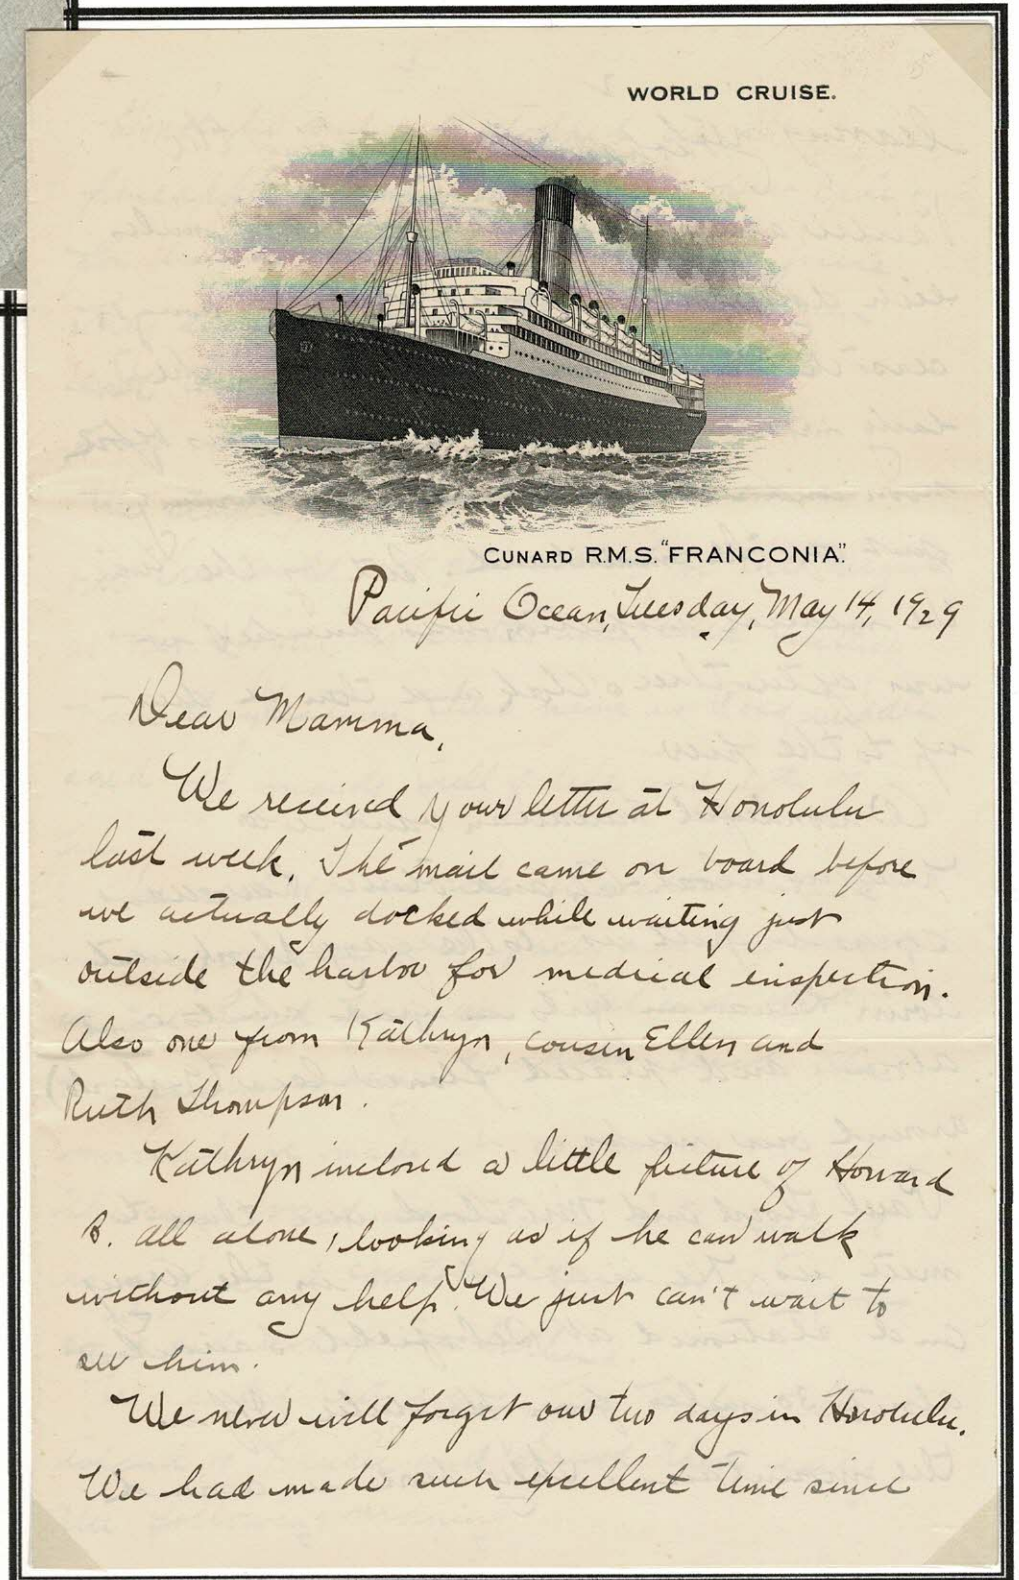 WORLD CRUISE.
CUNARD R.M.S. "FRANCONIA".
Pacific Ocean, Tuesday, May 14, 1929
Dear Mamma,
We received your letter at Honolulu
last week. The mail came on board before
we actually docked while waiting just
outside the harbor for medical inspection.
Also one from Kathryn, cousin Ellen and
Ruth Thompson.
Kathryn inclosed a little picture of Howard
B. all alone, looking as if he can walk
without any help. We just can't wait to
see him.
We never will forget our two days in Honolulu.
We had made such excellent time since